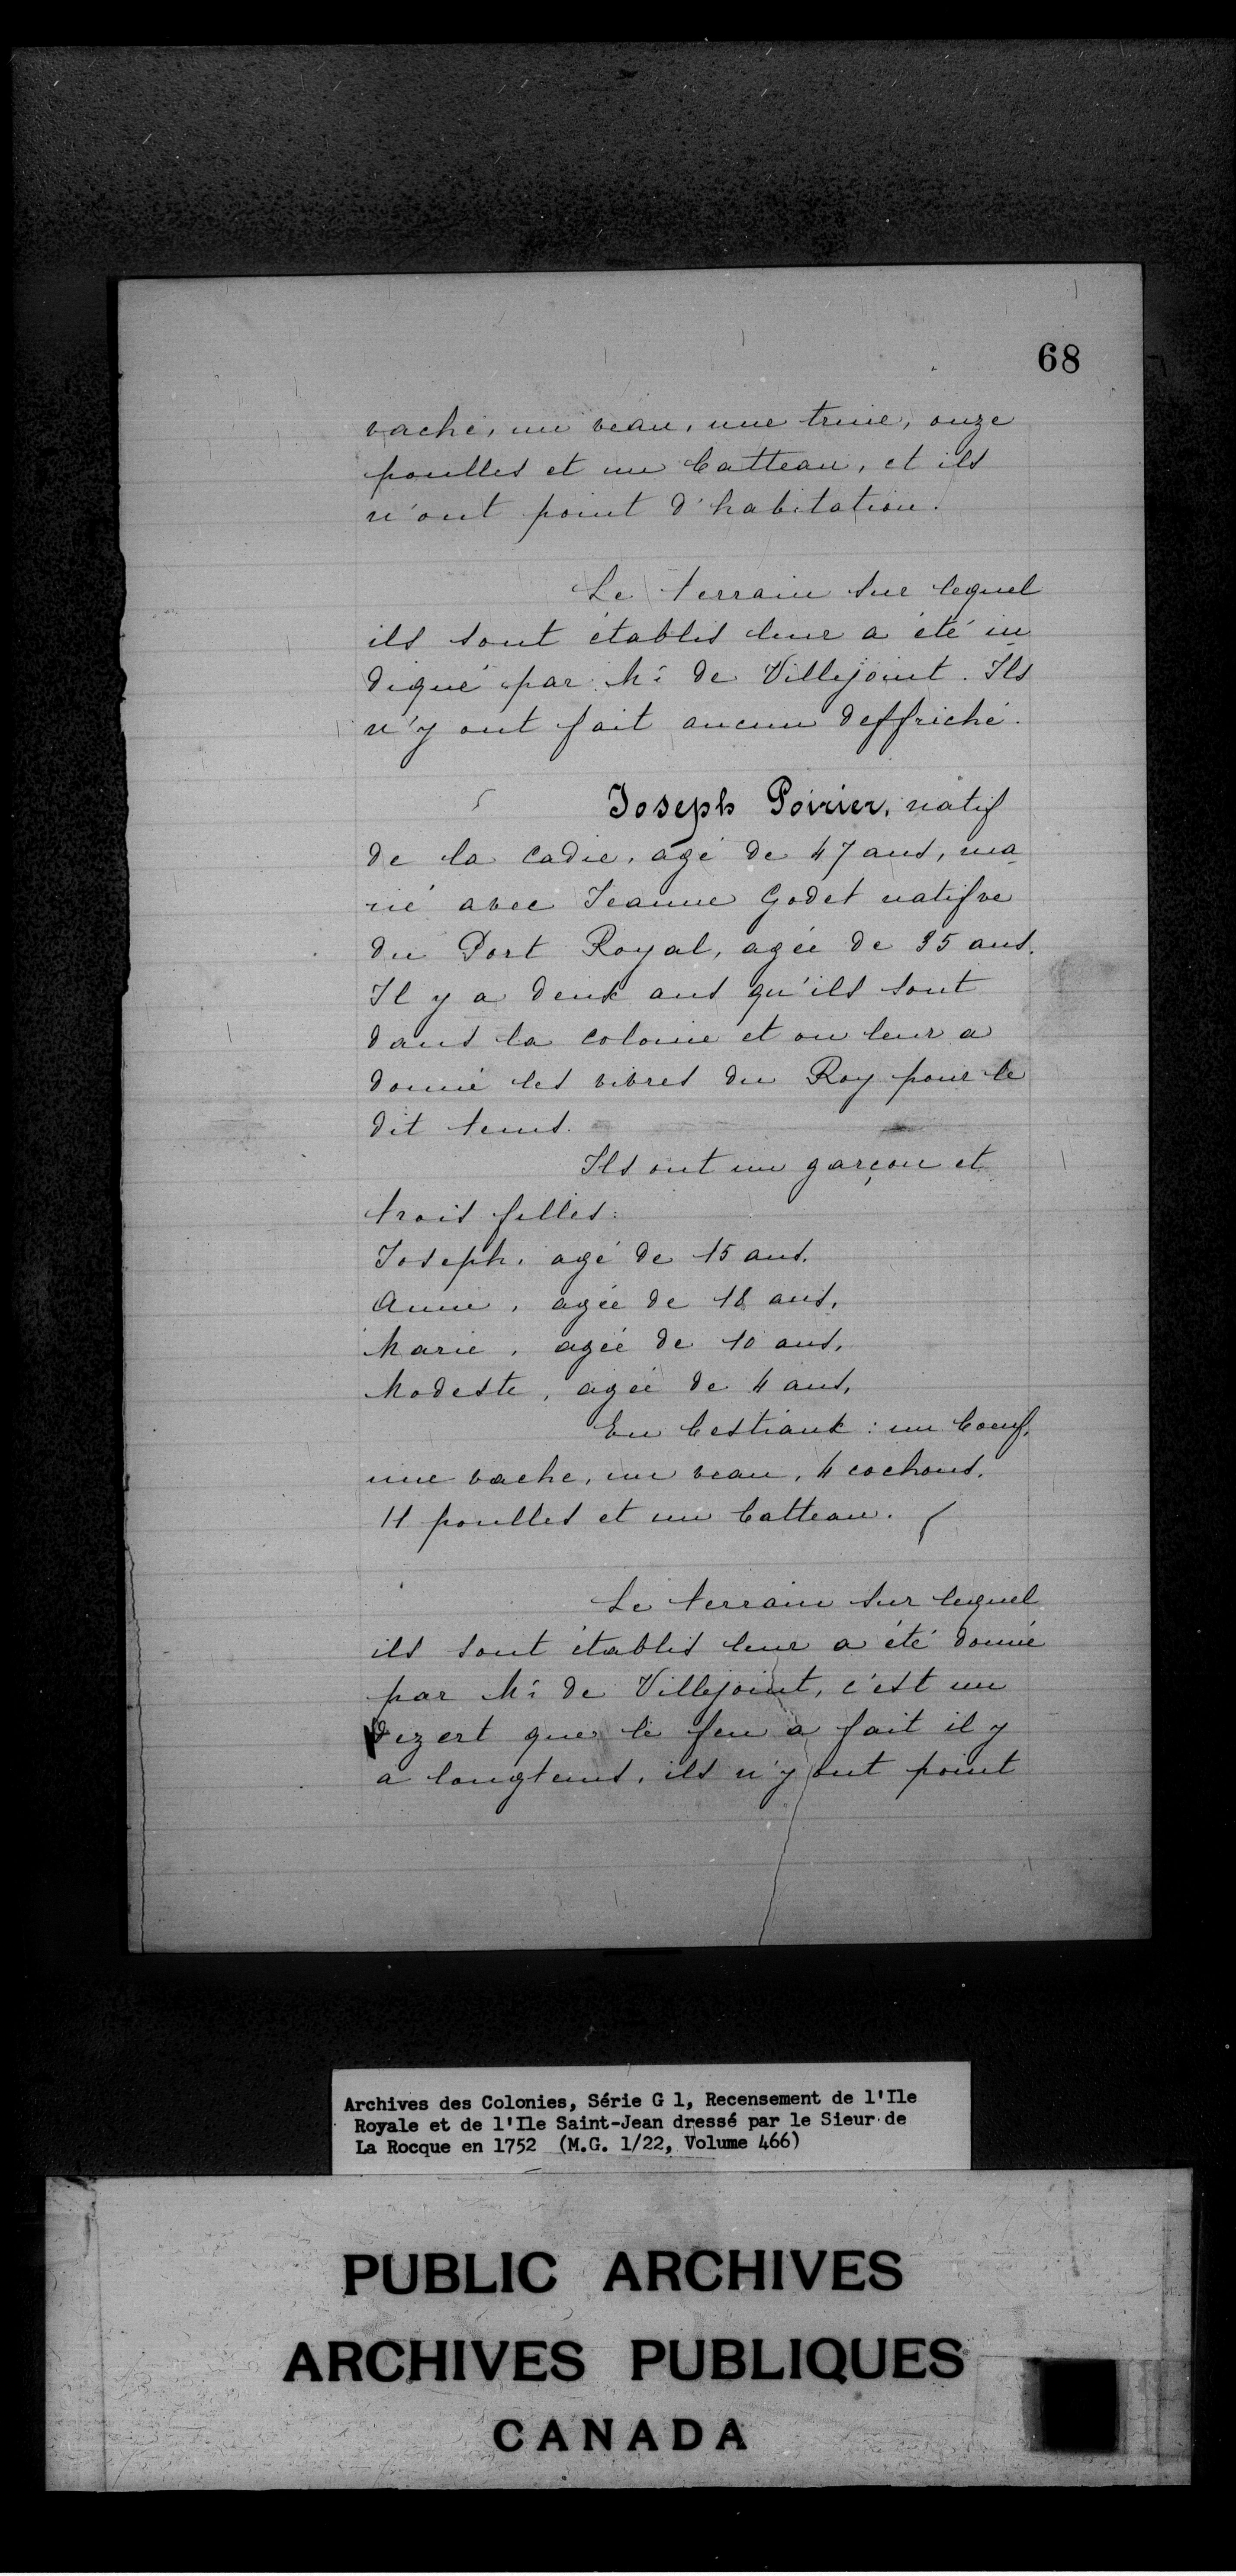 68
vache, un veau, une truie, onze
poulles et un batteau, et ils
n'ont point d'habitation.
Le terrain sur lequel
ils sont établis leur a été in
diqué par Mr de Villejoint. Ils
n'y ont fait aucun deffriché.
Joseph Poirier, natif
de la Cadie, agé de 47 ans, ma
rié avec Jeanne Godet natifve
du Port Royal, agée de 35 ans.
Il y a deux ans qu'ils sont
dans la colonie et on leur a
donné les vivres du Roy pour le
dit tems.
Ils ont un garçon et
trois filles:
Joseph, agé de 15 ans.
Anne, agée de 18 ans,
Marie, agée de 10 ans,
Modeste, agée de 4 ans,
En bestiaux: un boeuf,
une vache, un veau, 4 cochons,
11 poulles et un batteau.
Le terrain sur lequel
ils sont établis leur a été donné
par Mr de Villejoint, c'est un
dezert que le feu a fait il y
a longtems, ils n'y ont point
Archives des Colonies, Série G 1, Recensement de l'Ile
Royale et de l'Ile Saint-Jean dressé par le Sieur de
La Rocque en 1752 (M.G. 1/22, Volume 466)
PUBLIC ARCHIVES
ARCHIVES PUBLIQUES
CANADA